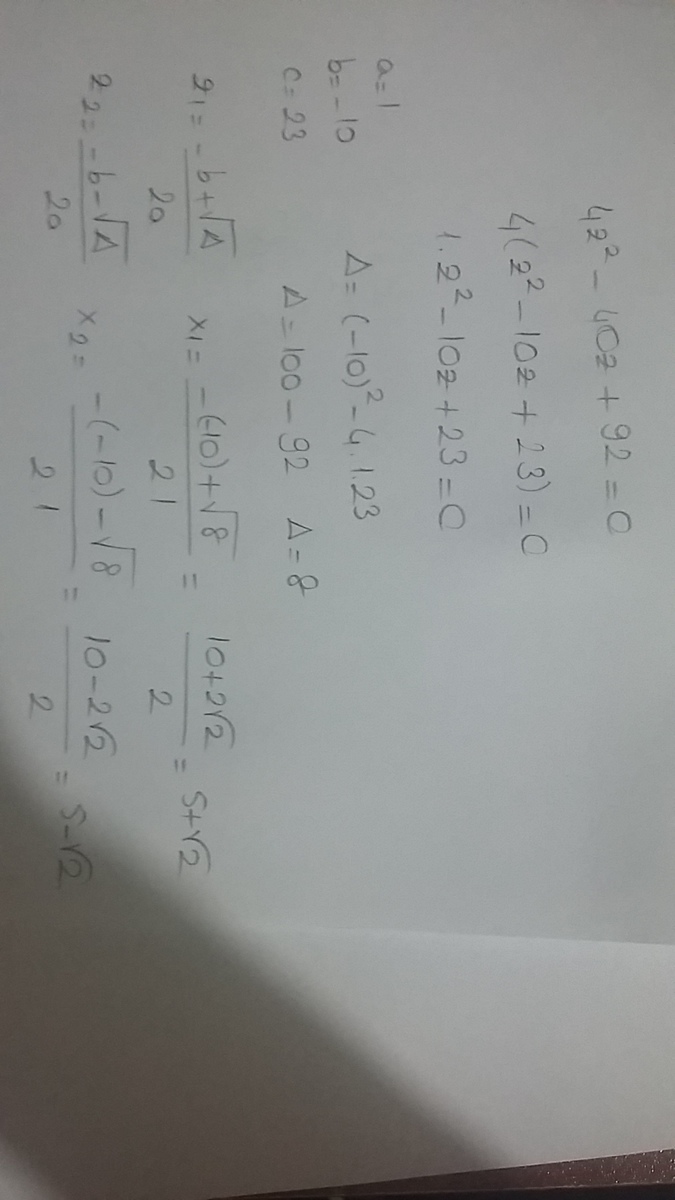 4z² - 40z + 92 = 0
4(z² - 10z + 23) = 0
1.z² - 10z + 23 = 0
a = 1
b = -10
c = 23
Δ = (-10)² - 4.1.23
Δ = 100 - 92 Δ = 8
z₁ = (-b + √Δ)/2a x₁ = (-(-10) + √8)/2 1 = (10 + 2√2)/2 = 5 + √2
z₂ = (-b - √Δ)/2a x₂ = (-(-10) - √8)/2 1 = (10 - 2√2)/2 = 5 - √2